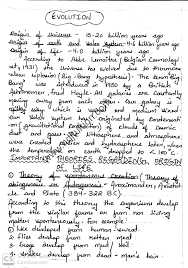 EVOLUTION
Origin of Universe - 15-20 billion years ago
Origin of earth and Solar system - 4.6 billion years ago
Origin of life - 4.0 billion years ago
According to Abbe Lemaitre (Belgian Cosmology
1931) the Universe is born due to enormous
explosion (Big-Bang hypothesis). The term 'Big
Bang' was introduced in 1950 by a British
Astronomer. All galaxies are constantly
moving away from each other. Our galaxy is
milky way which is vast and medium sized.
Our solar system have originated by condensati-
on (gravitational) of clouds of cosmic
dust and gas. lithosphere and atmosphere
were created earlier and hydrosphere later, when
the temperature of earth dropped to < 100°C.
IMPORTANT THEORIES REGARDING ORIGIN
OF LIFE
1) Theory of spontaneous creation / Theory of
abiogenesis or Autogenesis - Anaximander, Aristotle
and Plato (384-322 BC)
According to this theory the organisms develop
from the similar forms or from non living
matter spontaneously. For example:
1. Lice developed from human sweat
2. Flies develop from rotten meat
3. Frogs develop from mud / soil
4. Snakes develop from dead man's hair.